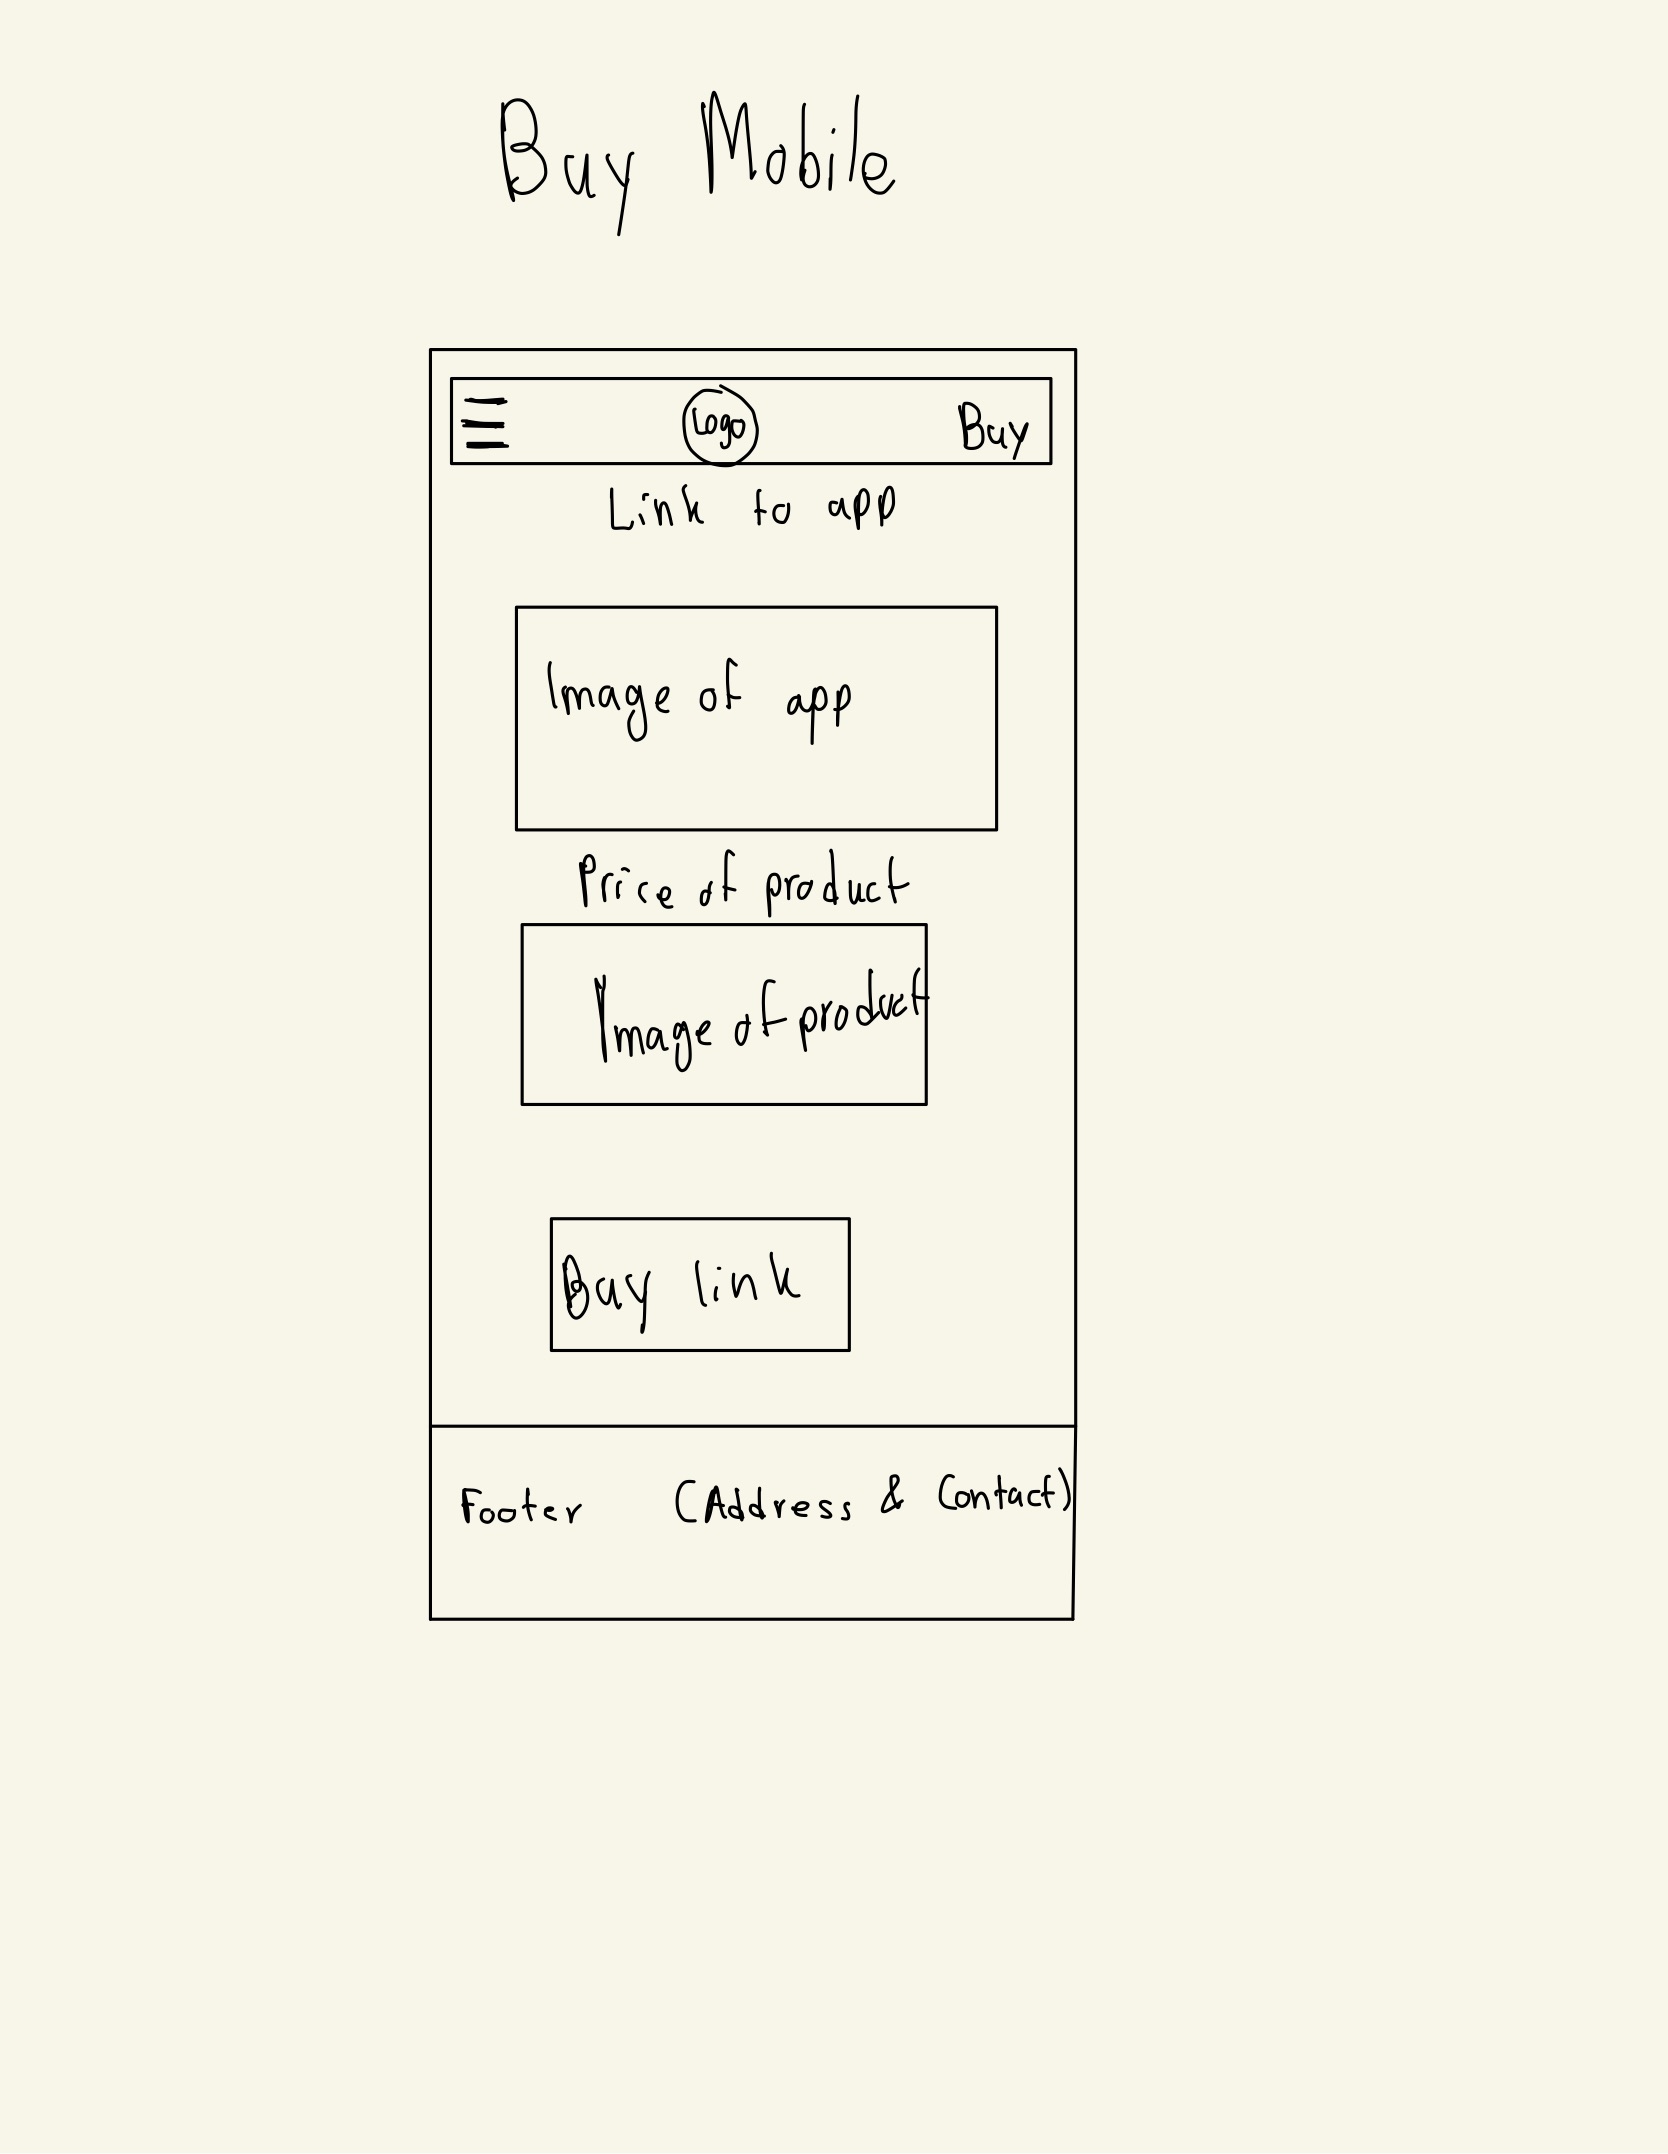 Buy Mobile
Logo Buy
Link to app
Image of app
Price of product
Image of product
Buy link
Footer (Address & Contact)